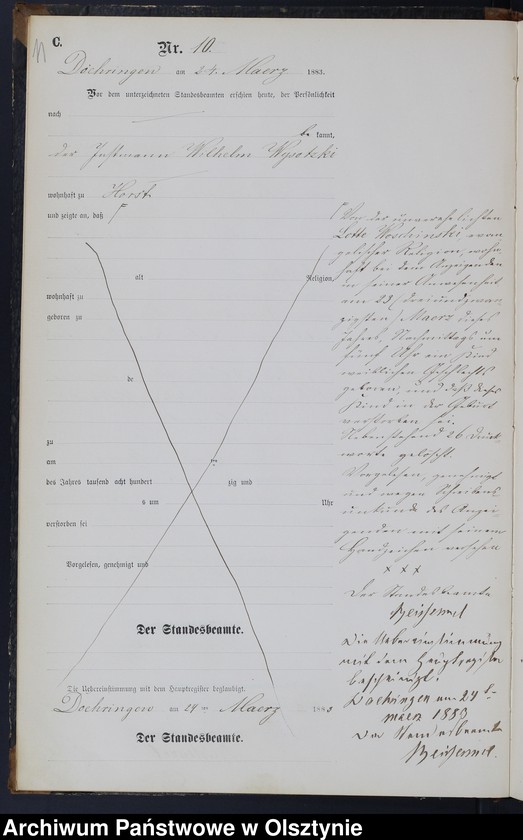 C.
Nr. 10.
Döhringen am 24. Maerz 1883.
Vor dem unterzeichneten Standesbeamten erschien heute, der Persönlichkeit
nach
be kannt,
der Instmann Wilhelm Wysotzki
wohnhaft zu Horst
und zeigte an, daß
alt Religion,
wohnhaft zu
geboren zu
de
zu
am
des Jahres tausend acht hundert zig und
s um Uhr
verstorben sei
Vorgelesen, genehmigt und
Der Standesbeamte.
Die Uebereinstimmung mit dem Hauptregister beglaubigt.
Doehringen am 24 ten Maerz 1883
Der Standesbeamte.
von der unverehelichten
Lotte Woschinski evan
gelischer Religion, wohn
haft bei dem Anzeigenden
in seiner Anwesenheit
am 23 (dreiundzwan
zigsten) Maerz dieses
Jahres, Nachmittags um
fünf Uhr ein Kind
weiblichen Geschlechts
geboren, und daß dieses
Kind in der Geburt
verstorben sei.
Nebenstehend 26 Druck
worte gelöscht.
Vorgelesen, genehmigt
und wegen Schreibens
unkunde des Anzei
genden mit seinem
Handzeichen versehen
x x x
Der Standesbeamte
Die Uebereinstimmung
mit dem Hauptregister
bescheinigt.
Doehringen am 24 t
Maerz 1883
Der Standesbeamte
Archiwum Państwowe w Olsztynie